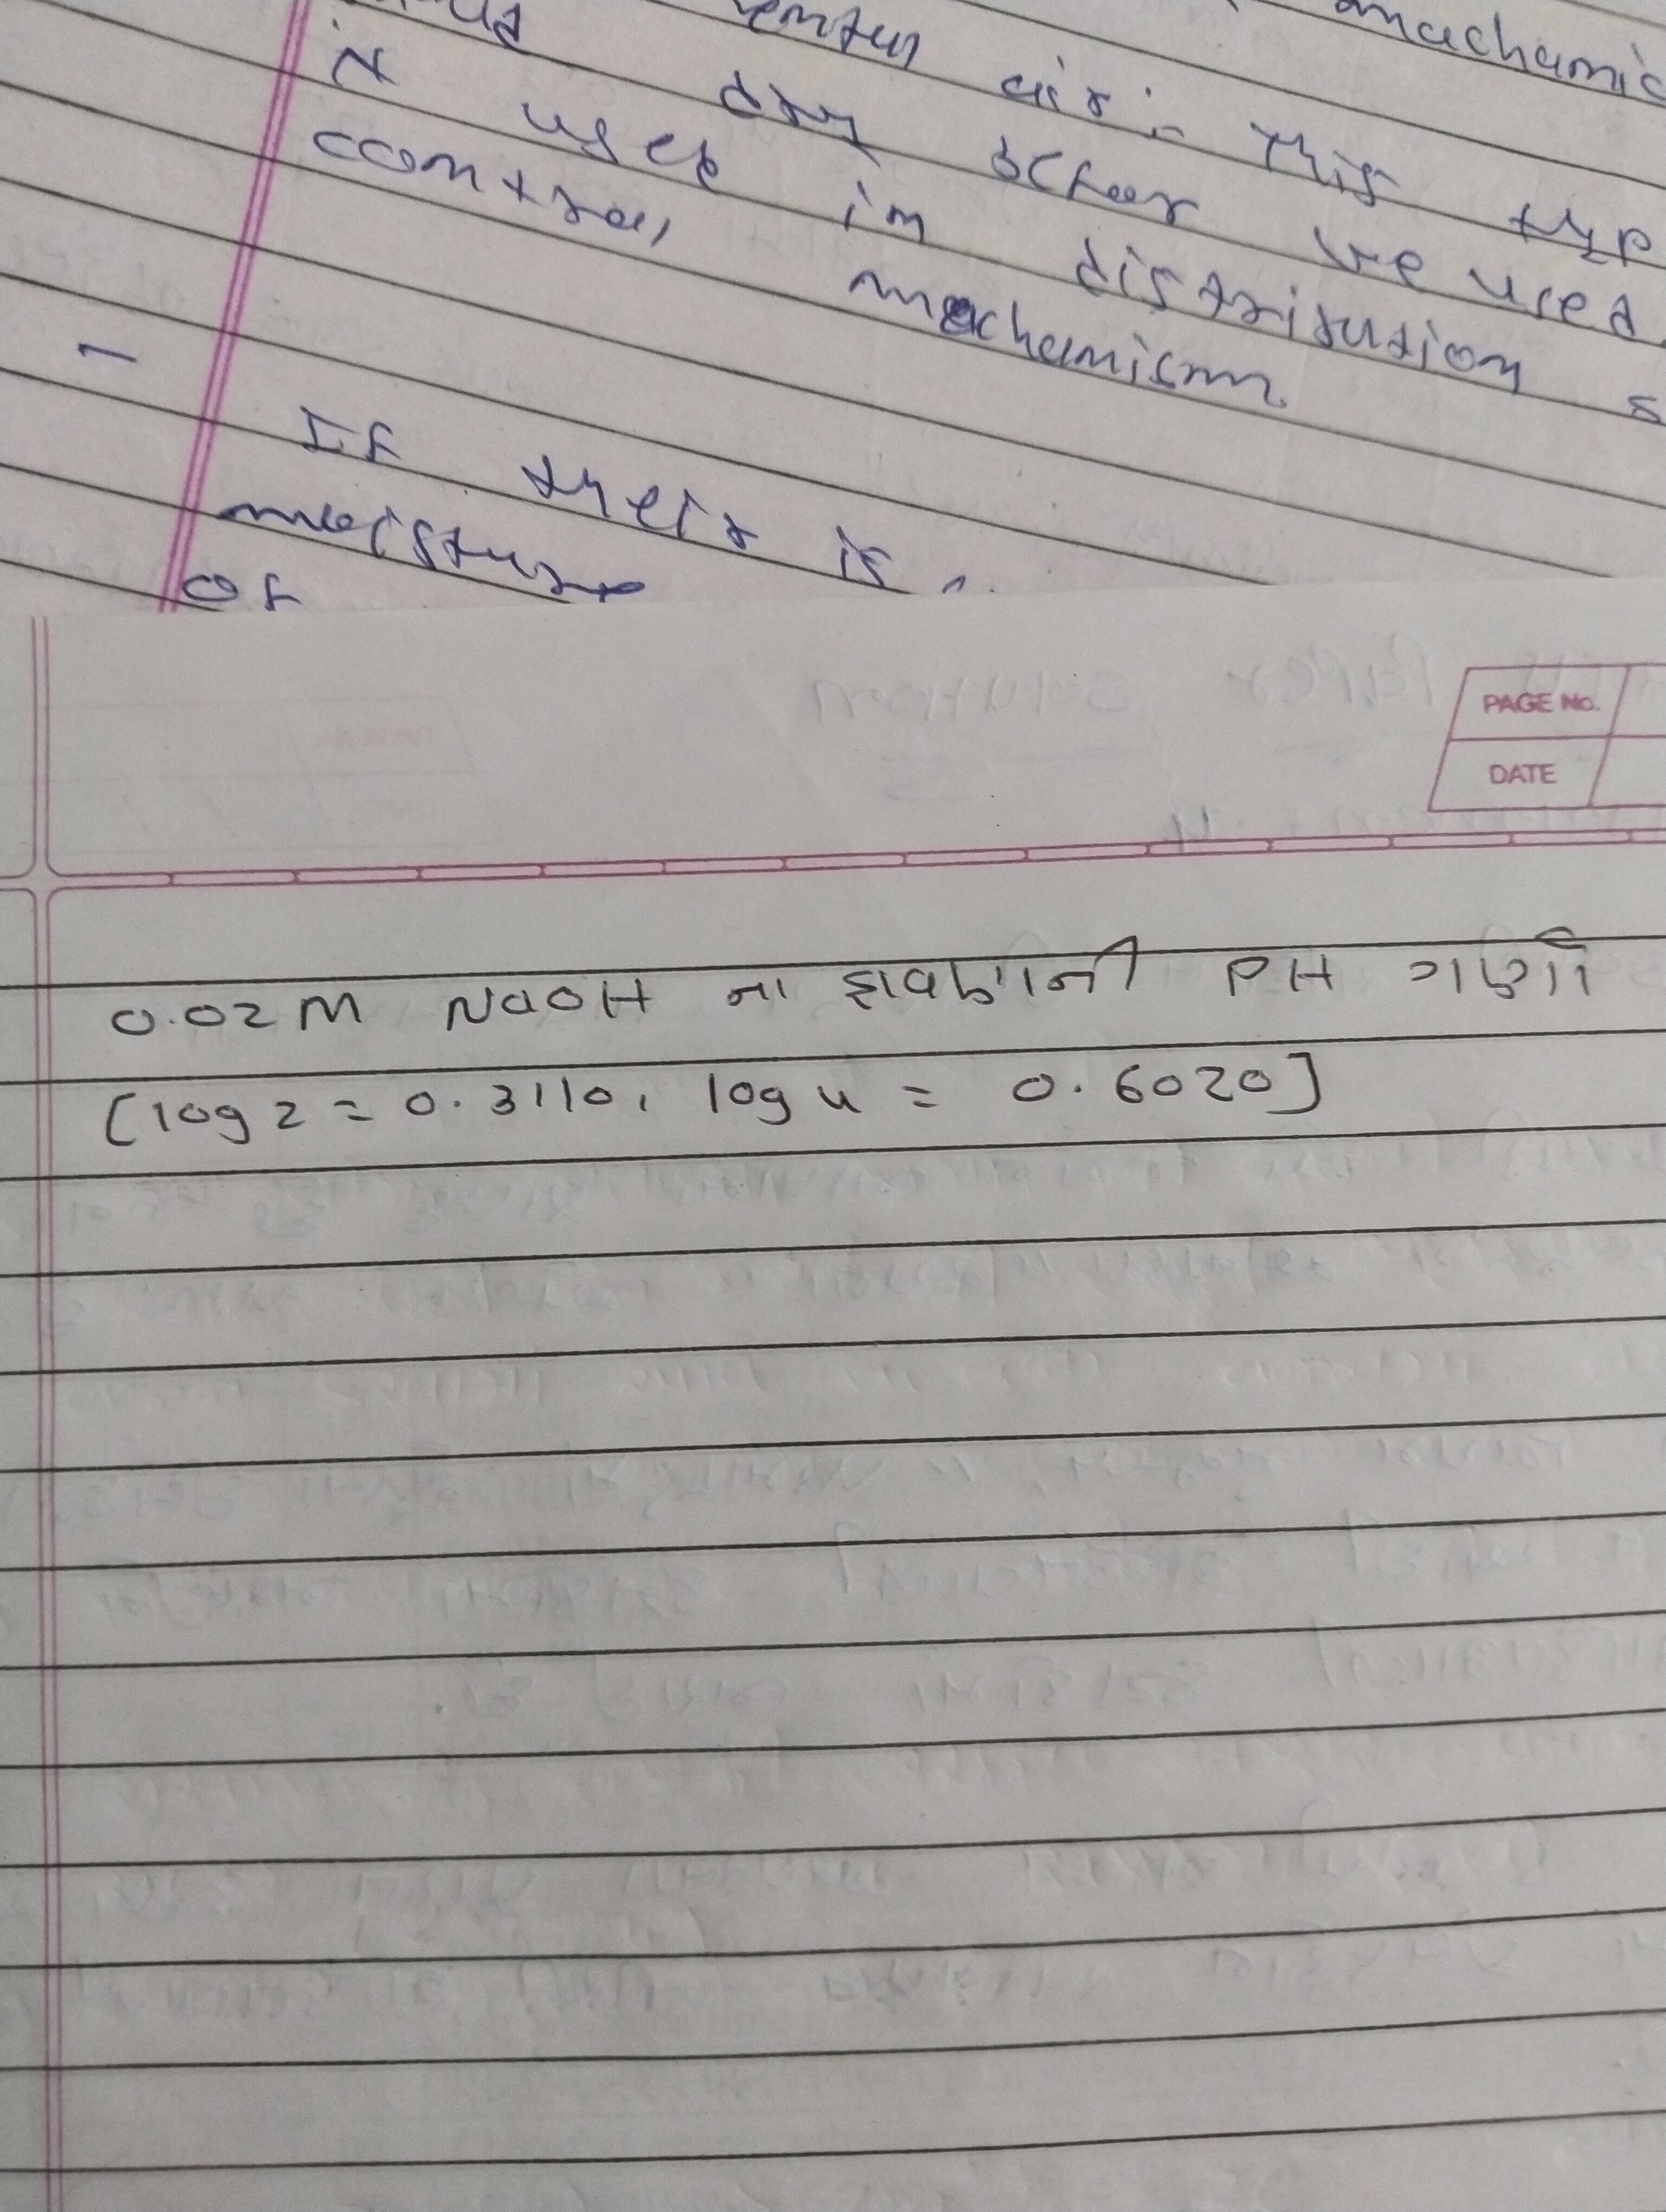 machanic
air. This typ
dry
be used.
is used in distribution s
control mechanism
- If their is
moisture
of
PAGE No.
DATE
0.02M NaOH ના દ્રાવણની PH ગણો
[log 2 = 0.3110, log 4 = 0.6020]